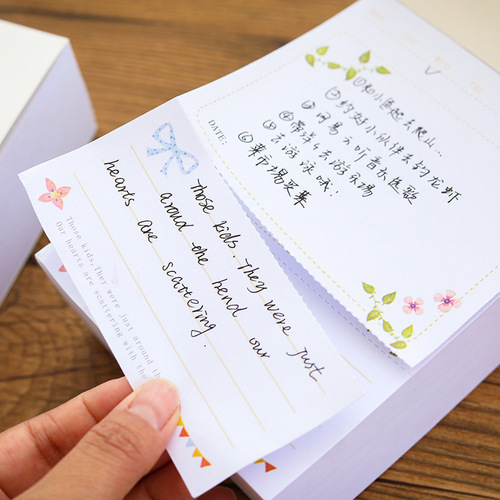 ①和小鱼起去爬山..
②约好小伙伴去钓龙虾
③网易云听音乐选歌
④带洋々去游乐场
⑤去游泳哦!
⑥菜市场买菜
DATE:
Those kids. They were just
around the bend our
hearts are scattering.
Those kids.They were just around th
Our hearts are scattering with the